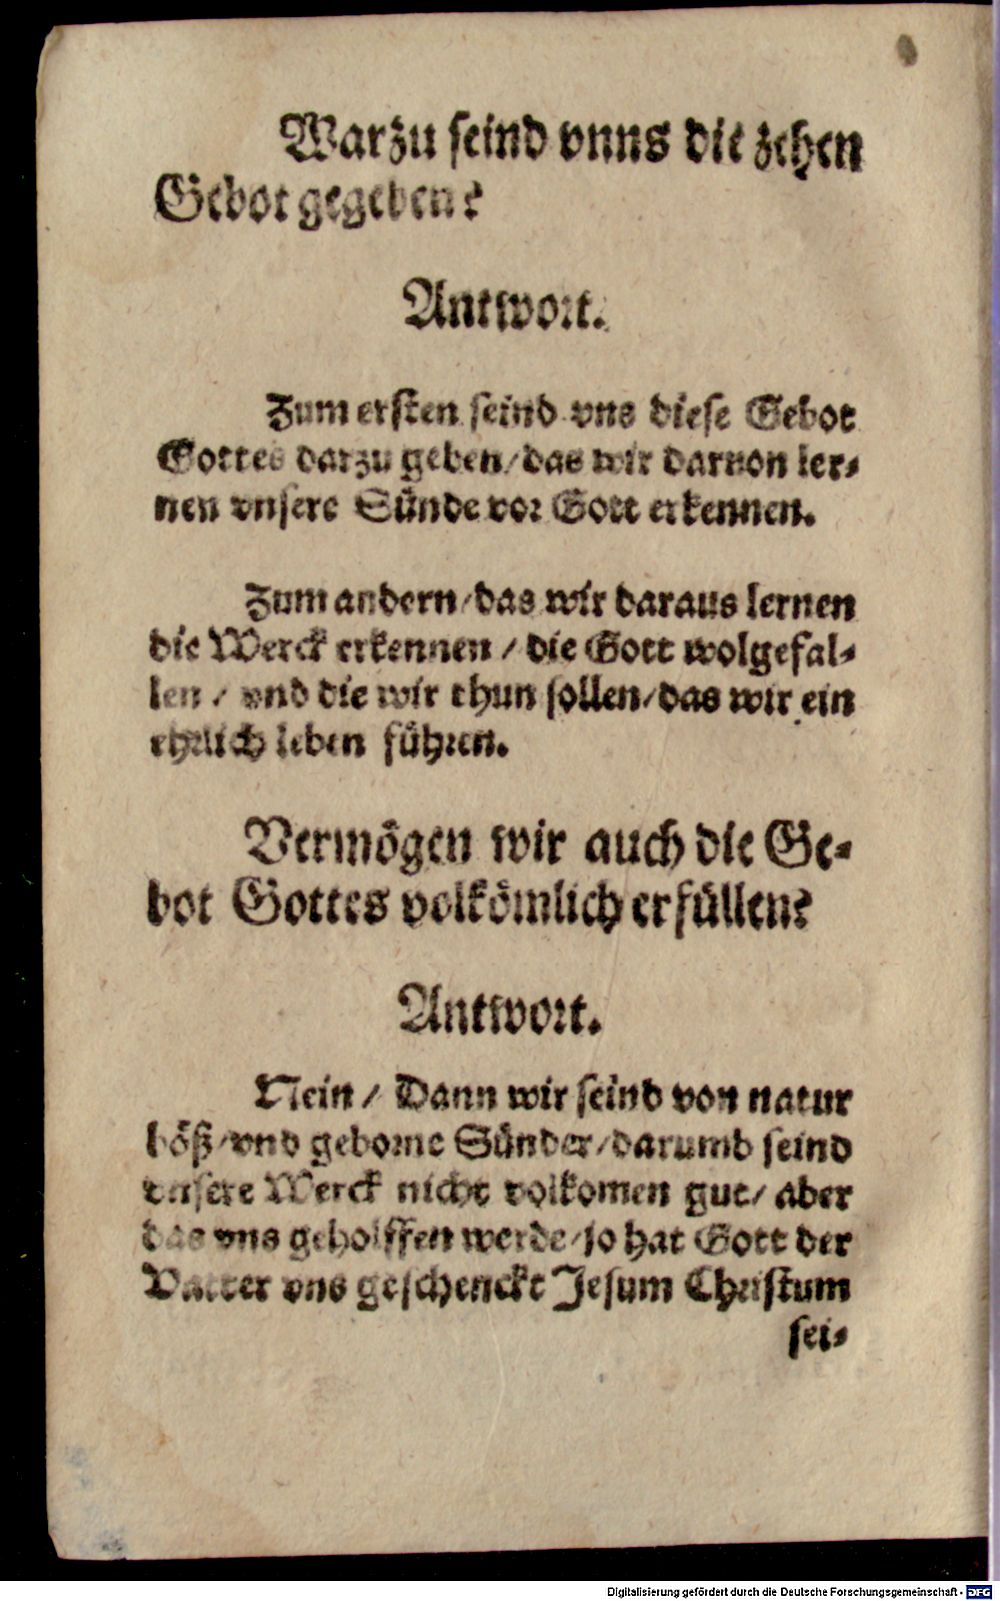 Warzu seind vnns die zehen
Gebot gegeben?
Antwort.
Zum ersten seind vns diese Gebot
Gottes darzu geben/das wir daruon ler-
nen vnsere Sünde vor Gott erkennen.
Zum andern/das wir daraus lernen
die Werck erkennen / die Gott wolgefal-
len / vnd die wir thun sollen/das wir ein
ehrlich leben führen.
Vermögen wir auch die Ge-
bot Gottes volkömlich erfüllen?
Antwort.
Nein / Dann wir seind von natur
böß/vnd geborne Sünder/darumb seind
vnsere Werck nicht volkomen gut/ aber
das vns geholffen werde/so hat Gott der
Vatter vns geschenckt Jesum Christum
sei-
Digitalisierung gefördert durch die Deutsche Forschungsgemeinschaft - DFG